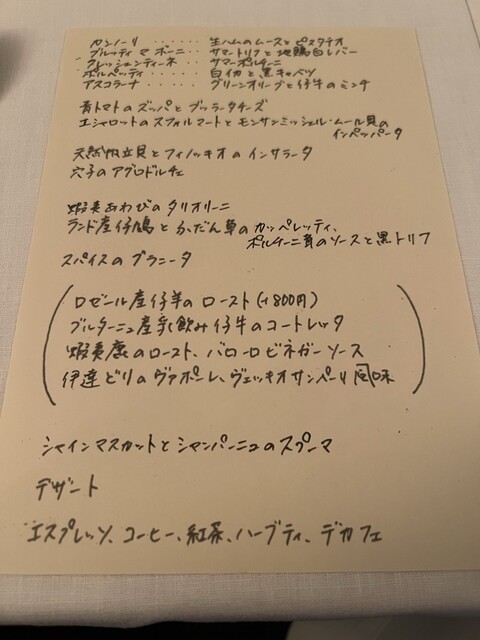 カンノーリ ...... 生ハムのムースとピスタチオ
ブルッティ マ ボーニ .. サマートリュフと地鶏白レバー
クレッシェンティーネ .. サマーポルチーニ
ポルペッティ ..... 白イカと黒キャベツ
アスコラーナ ..... グリーンオリーブと仔牛のミンチ
青トマトのズッパとブッラータチーズ
エシャロットのスフォルマートとモンサンミッシェル・ムール貝の
インペッパータ
天然帆立貝とフィノッキオのインサラータ
穴子のアグロドルチェ
蝦夷あわびのタリオリーニ
ランド産仔鳩とかだん草のカッペレッティ、
ポルチーニ茸のソースと黒トリフ
スパイスのグラニータ
ロゼール産仔羊のロースト(+800円)
ブルターニュ産乳飲み仔牛のコートレッタ
蝦夷鹿のロースト、バローロビネガーソース
伊達どりのヴァポーレ、ヴェッキオサンペーリ風味
シャインマスカットとシャンパーニュのスプーマ
デザート
エスプレッソ、コーヒー、紅茶、ハーブティ、デカフェ